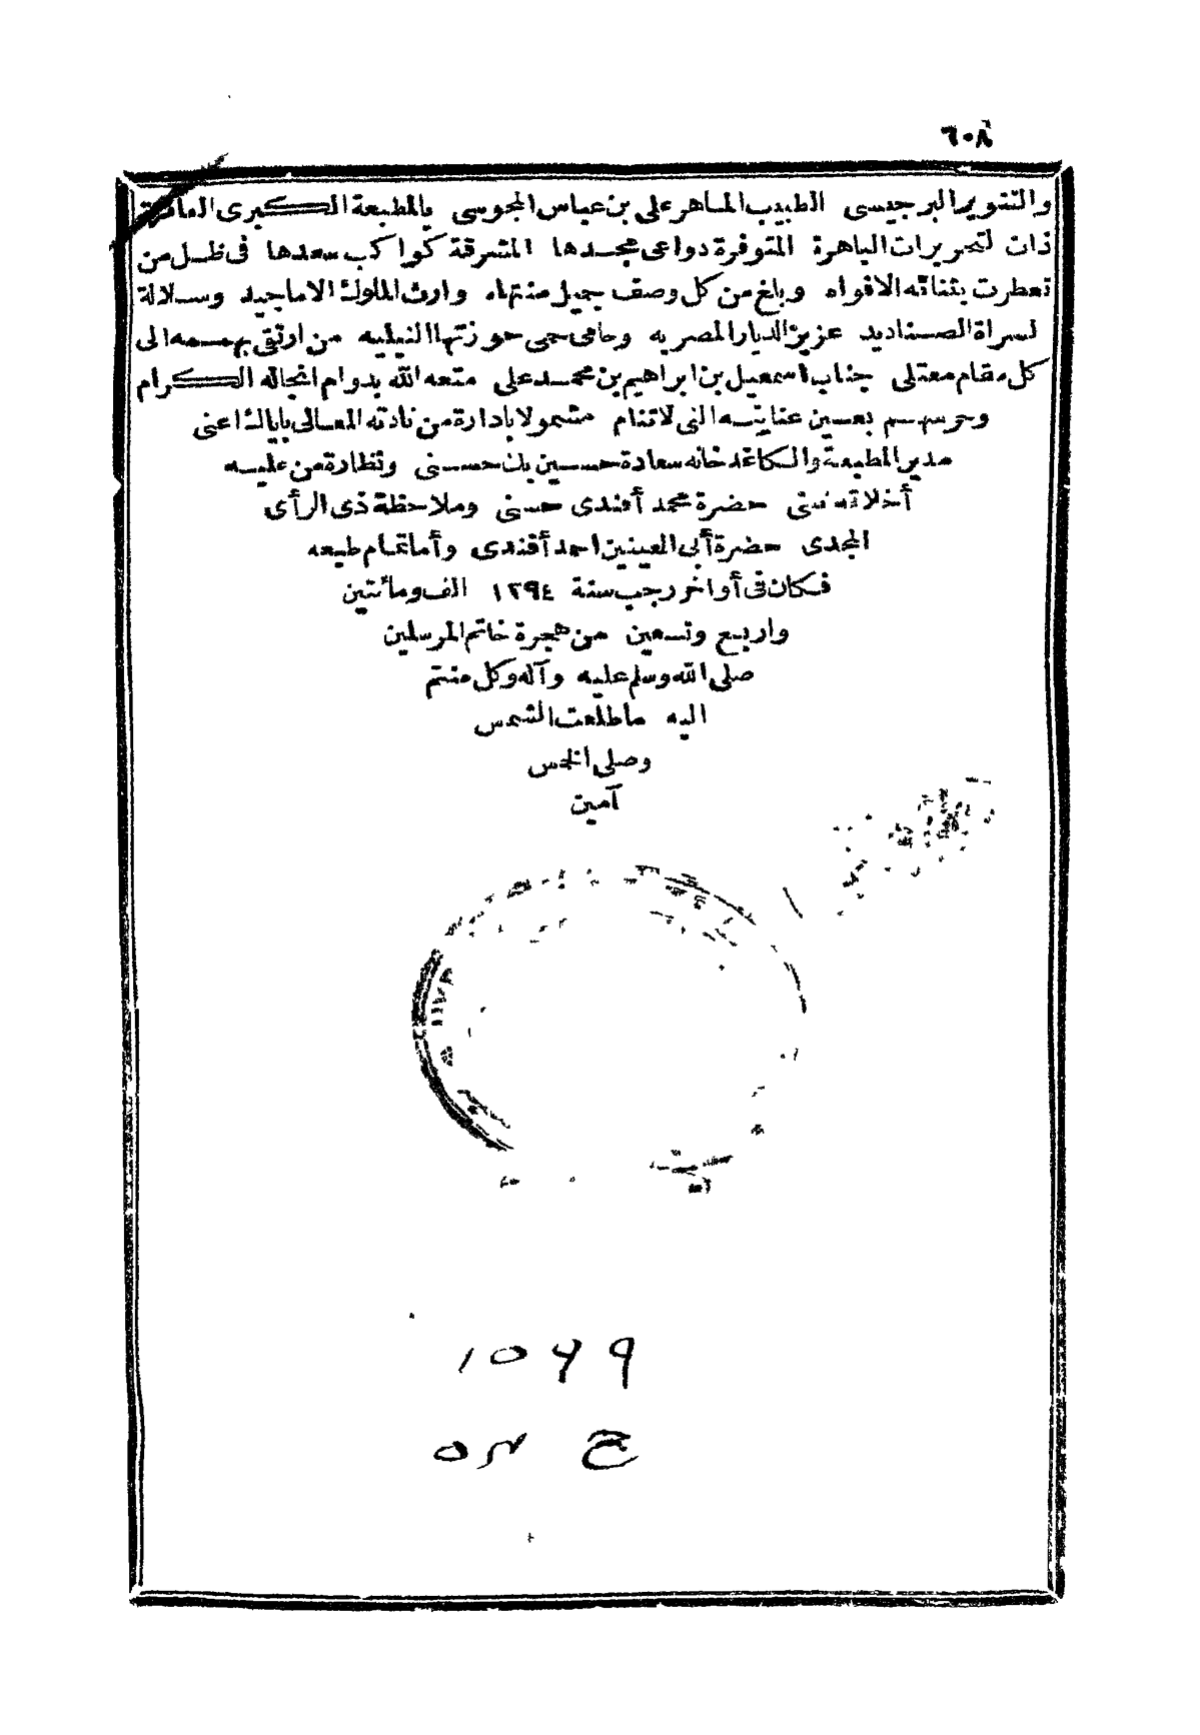 ٦٠٨
والتنوير البرجيسى الطبيب الماهر على بن عباس المجوسى بالمطبعة الكبرى العامرة
ذات التحريرات الباهرة المتوفرة دواعى مجدها المشرقة كواكب سعدها فى ظل من
تعطرت بثنائه الافواه وبلغ من كل وصف جميل منتهاه وارث الملوك الاماجيد وسلالة
السراة الصناديد عزيز الديار المصريه وحامى حمى حوزتها النيليه من ارتقى بهممه الى
كل مقام معتلى جناب اسمعيل بن ابراهيم بن محمد على متعه الله بدوام انجاله الكرام
وحرسهم بعين عنايته التى لاتنام مشمولا بادارة من نادته المعالى باياك اعنى
مدير المطبعة والكاغدخانه سعادة حسين بك حسنى ونظارة من عليه
أخلاقه تثنى حضرة محمد أفندى حسنى وملاحظة ذى الرأى
المجدى حضرة أبى العينين احمد أفندى وأما تمام طبعه
فكان فى أواخر رجب سنة ١٢٩٤ الف ومائتين
واربع وتسعين من هجرة خاتم المرسلين
صلى الله وسلم عليه وآله وكل منتم
اليه ما طلعت الشمس
وصلى الخمس
آمين